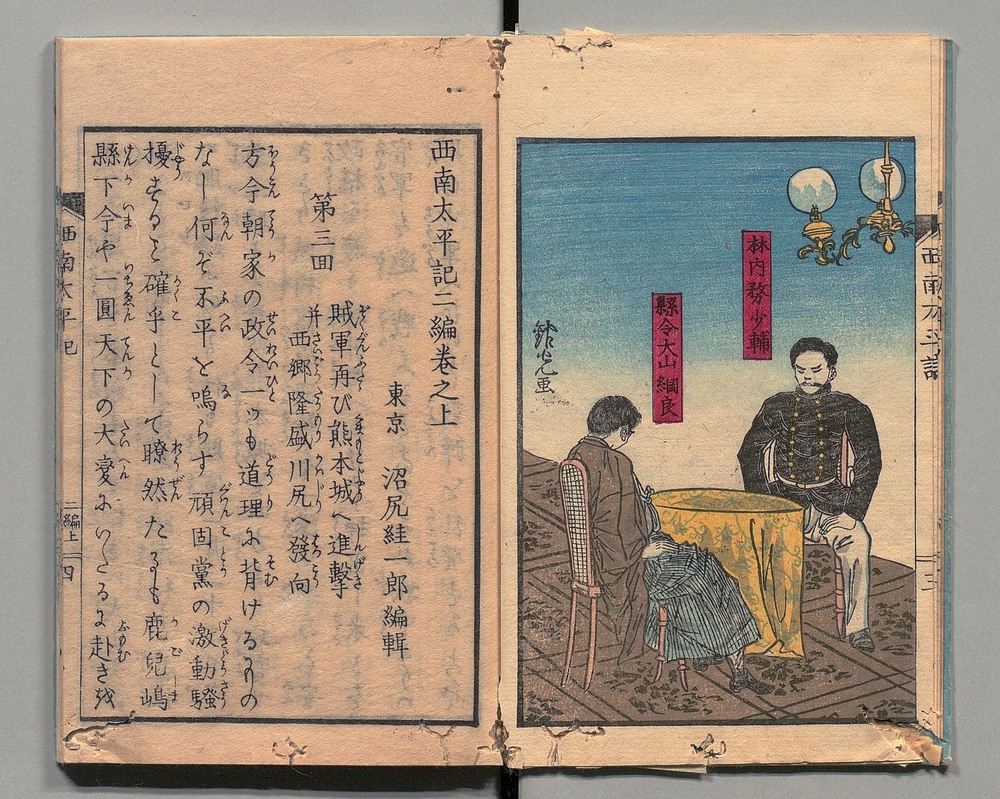 西南太平記
三
林内務少輔
縣令大山綱良
鮮光画
西南太平記二編巻之上
東京 沼尻絓一郎編輯
第三回
賊軍再び熊本城へ進擊
并西郷隆盛川尻へ發向
方今朝家の政令一ツも道理に背けるもの
なし何ぞ不平を鳴らす頑固黨の激動騷
擾することを確乎として瞭然たるも鹿兒嶋
縣下今や一圓天下の大變にいたるに赴き或
西南太平記
二編上
四